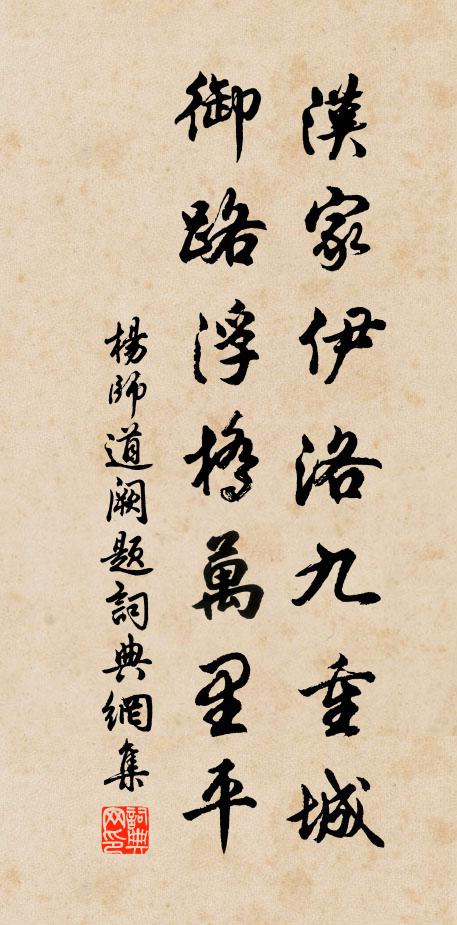 漢家伊洛九重城
御路浮橋萬里平
楊師道闕題詞典網集
詞典網印